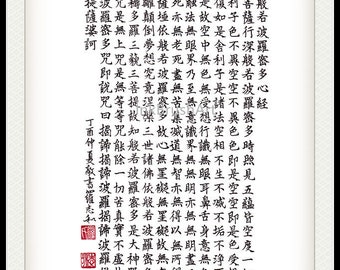 般若波羅蜜多心經
菩薩行深般若波羅蜜多時照見五蘊皆空度一
利子色不異空空不異色色即是空空即是色受
復如是舍利子是諸法空相不生不滅不垢不淨
是故空中無色無受想行識無眼耳鼻舌身意無
法無眼界乃至無意識界無無明亦無
死亦無老死盡無苦集滅道無智亦無得以無所
薩埵依般若波羅蜜多故心無罣礙無罣礙故
離顛倒夢想究竟涅槃三世諸佛依般若波羅蜜多
耨多羅三藐三菩提故知般若波羅蜜多是大神
咒是無上咒是無等等咒能除一切苦真實不虛
羅蜜多咒即說咒曰揭諦揭諦波羅揭諦波羅
提薩婆訶
丁酉仲夏敬書